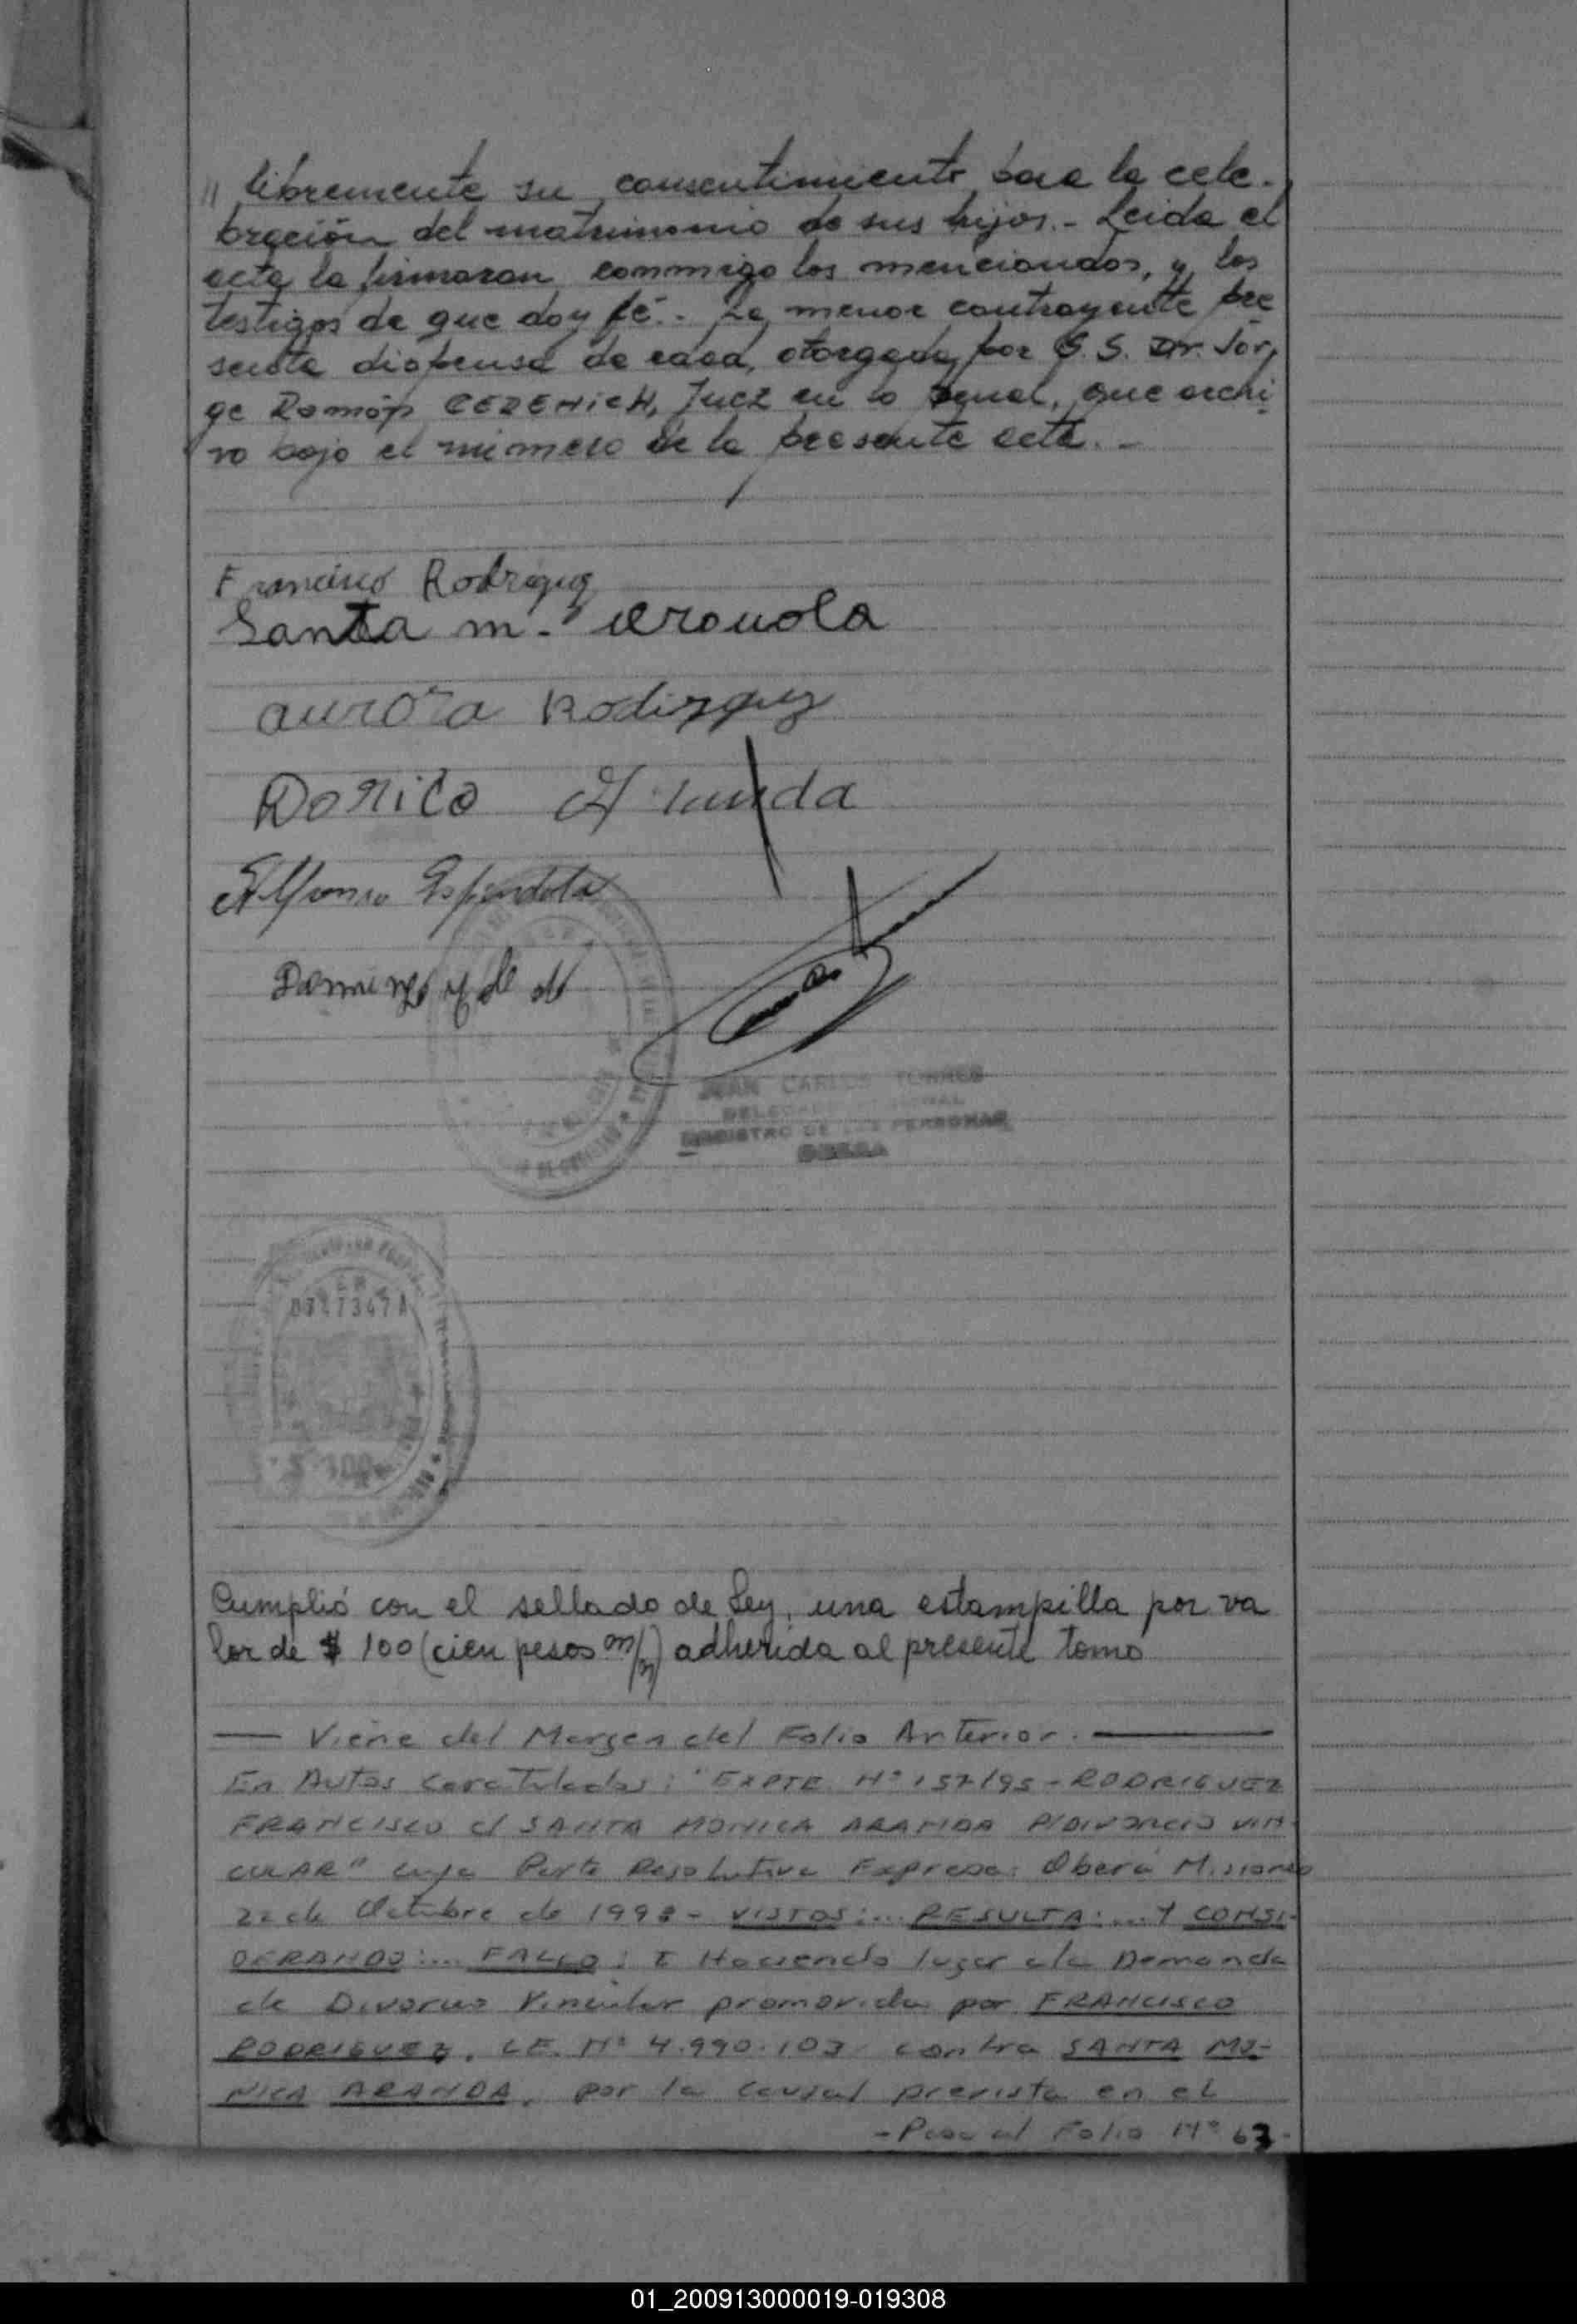 // libremente su consentimiento para la cele-
bración del matrimonio de sus hijos.- Leida el
acta la firmaron conmmigo los mencionados, y los
testigos de que doy fé.- La menor contrayente pre
senta dispensa de edad, otorgada por S. S. Dr. Jor,
ge Ramón CEREHICH, Juez en lo Penal, que archi
vo bajo el número de la presente acta.-
Francisco Rodriguez
Santa m.
aurora Rodirguez
Alfonso Espindola
JUAN CARLOS TORRES
REGISTRO DE LAS PERSONAS
OBERA
0347347A
$ 100
Cumplió con el sellado de Ley, una estampilla por va
lor de $ 100 (cien pesos m/n) adherida al presente tomo
— Viene del Margen del Folio Anterior. —
En Autos Caratulados: "EXPTE. Nº 157/95 - RODRIGUEZ
FRANCISCO c/ SANTA MONICA ARANDA P/DIVORCIO VIN-
CULAR" cuya Parte Resolutiva Expresa: Oberá Misiones
22 de Octubre de 1998 - VISTOS:... RESULTA:... Y CONSI-
DERANDO:... FALLO: I Haciendo lugar a la Demanda
de Divorcio Vincular promovida por FRANCISCO
RODRIGUEZ, LE. Nº 4.990.103 contra SANTA MO-
NICA ARANDA, por la causal prevista en el
- Pasa al Folio Nº 63-
01_200913000019-019308